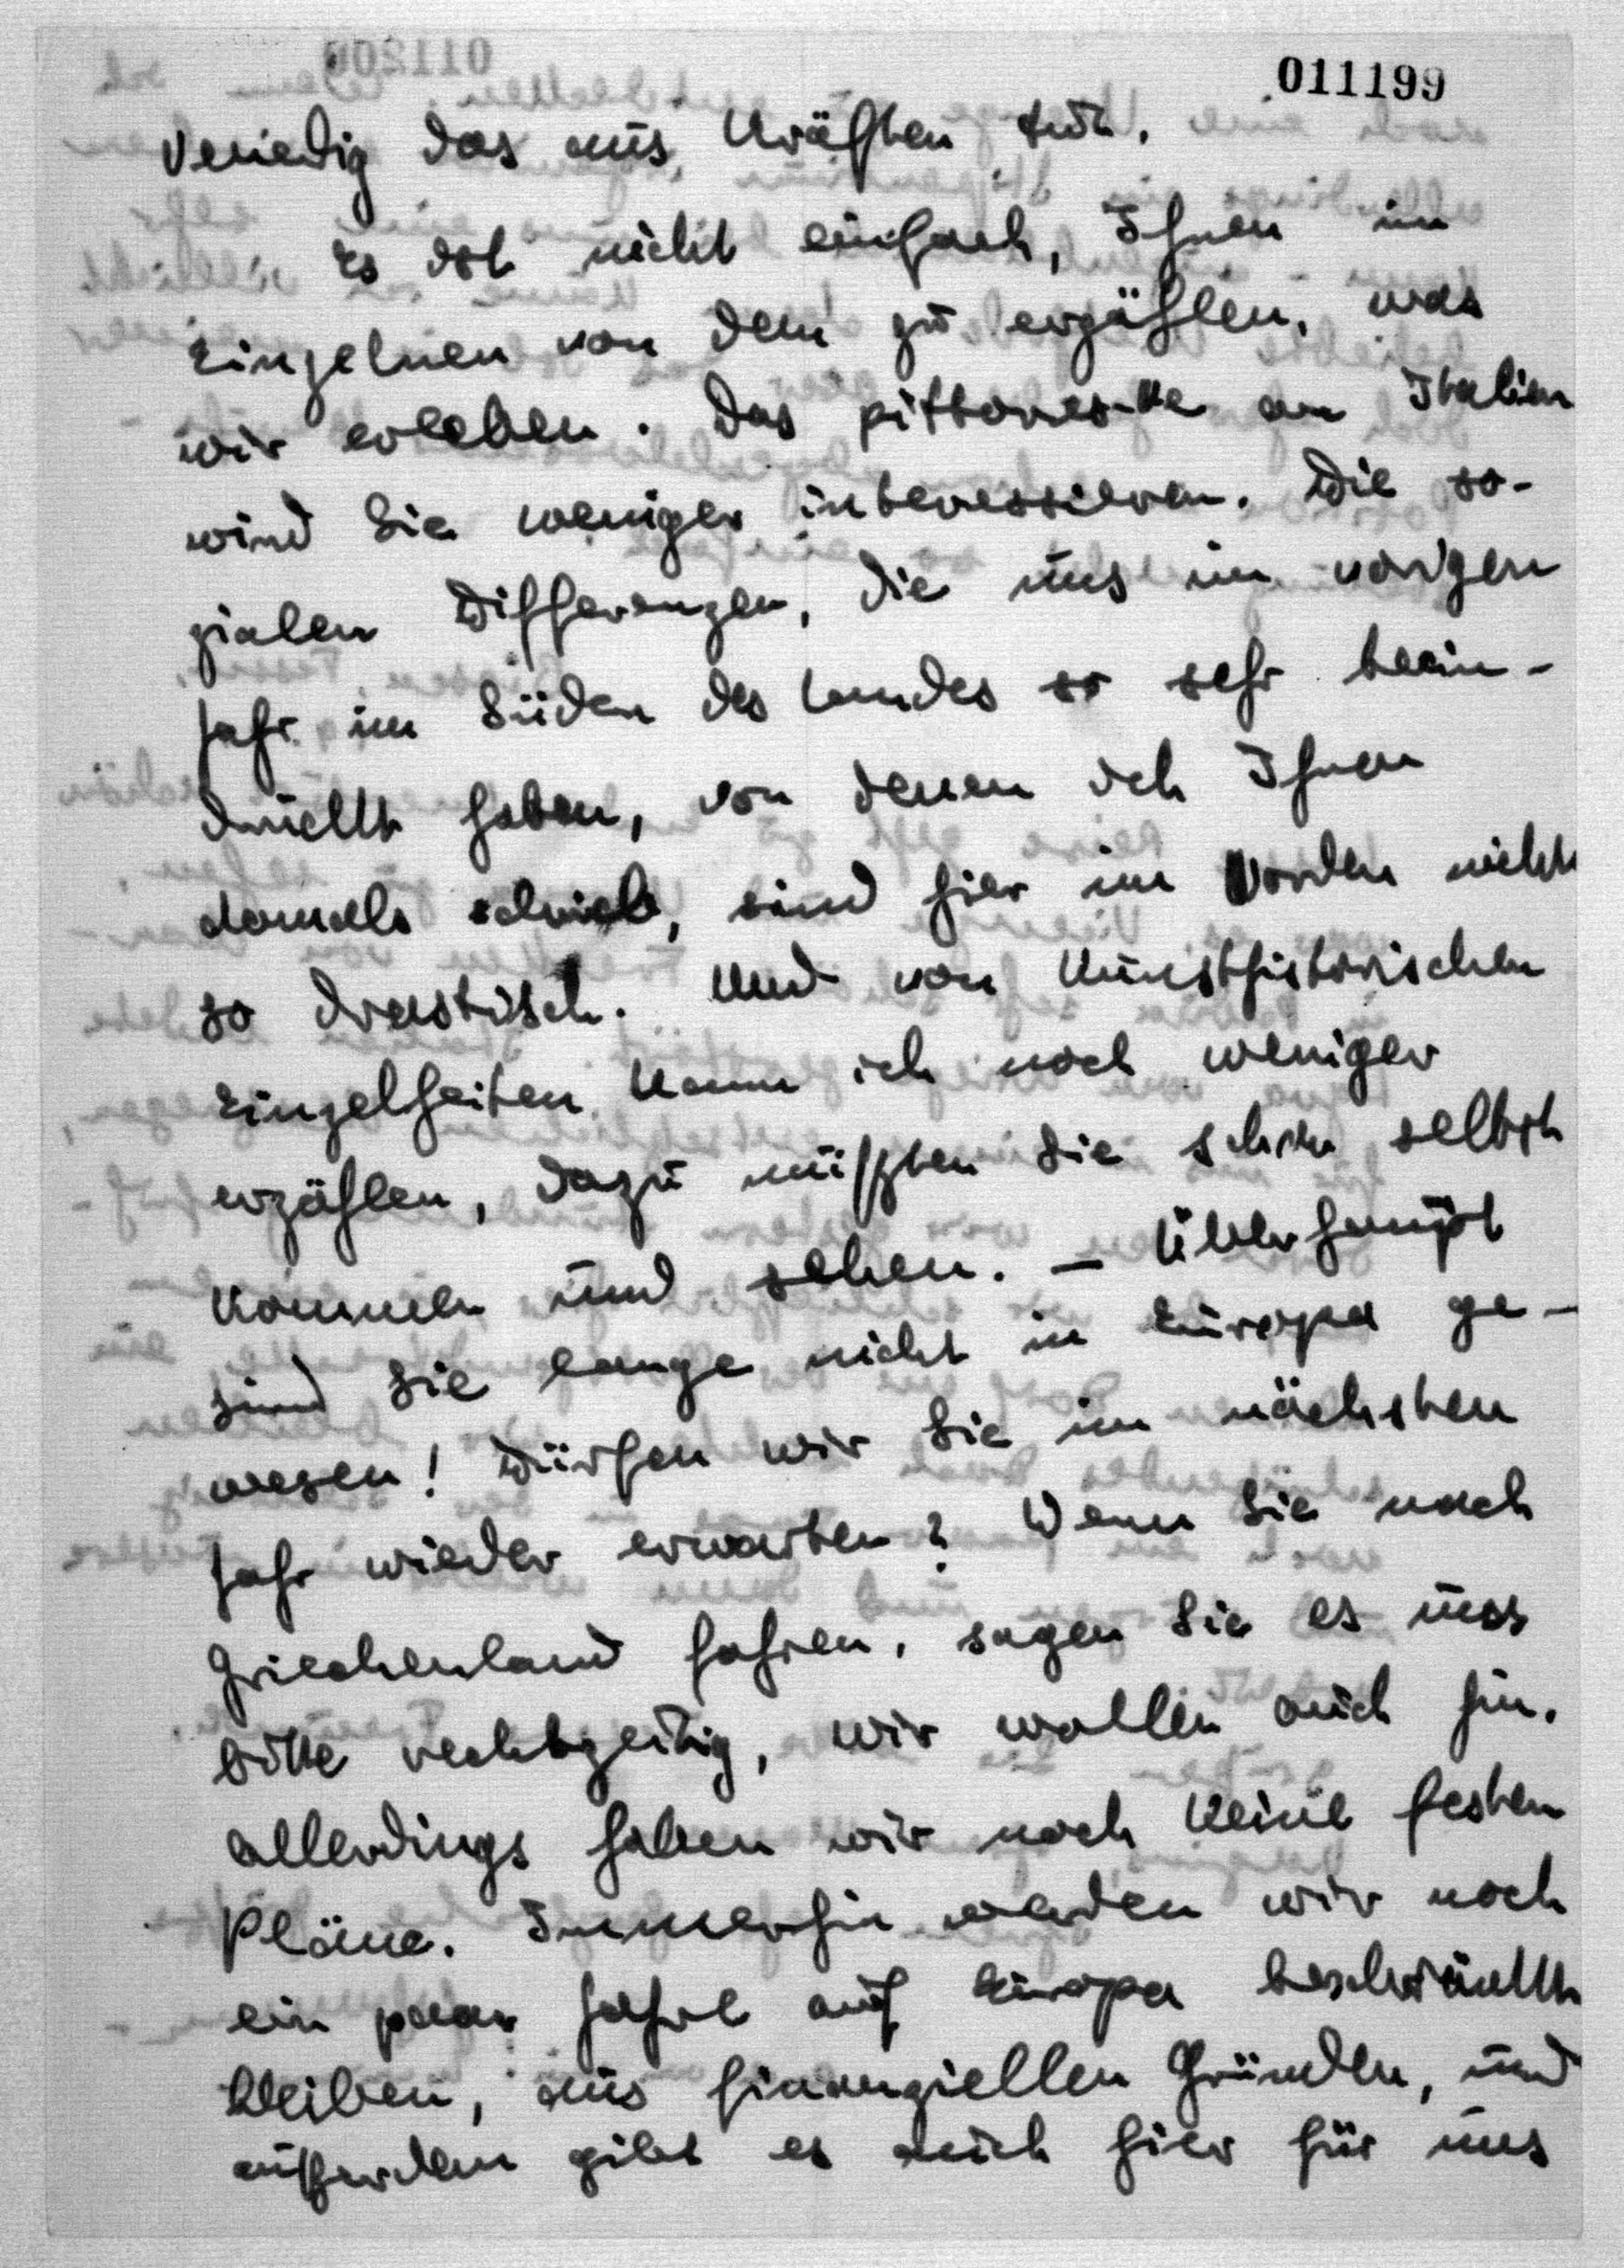 011199
Venedig das aus Kräften tut.
Es ist nicht einfach, Ihnen im
Einzelnen von dem zu erzählen, was
wir erleben. Das pittoreske an Italien
wird Sie weniger interessieren. Die so-
zialen Differenzen, die uns im vorigen
Jahr im Süden des Landes so sehr beein-
druckt haben, von denen ich Ihnen
damals schrieb, sind hier im Norden nicht
so drastisch. Und von Kunsthistorischen
Einzelheiten kann ich noch weniger
erzählen, dazu müßten Sie schon selbst
kommen und sehen. – Überhaupt
sind Sie lange nicht in Europa ge-
wesen! Dürfen wir Sie im nächsten
Jahr wieder erwarten? Wenn Sie nach
Griechenland fahren, sagen Sie es uns
bitte rechtzeitig, wir wollen auch hin,
allerdings haben wir noch keine festen
Pläne. Immerhin werden wir noch
ein paar Jahre auf Europa beschränkt
bleiben, aus finanziellen Gründen, und
außerdem gibt es auch hier für uns